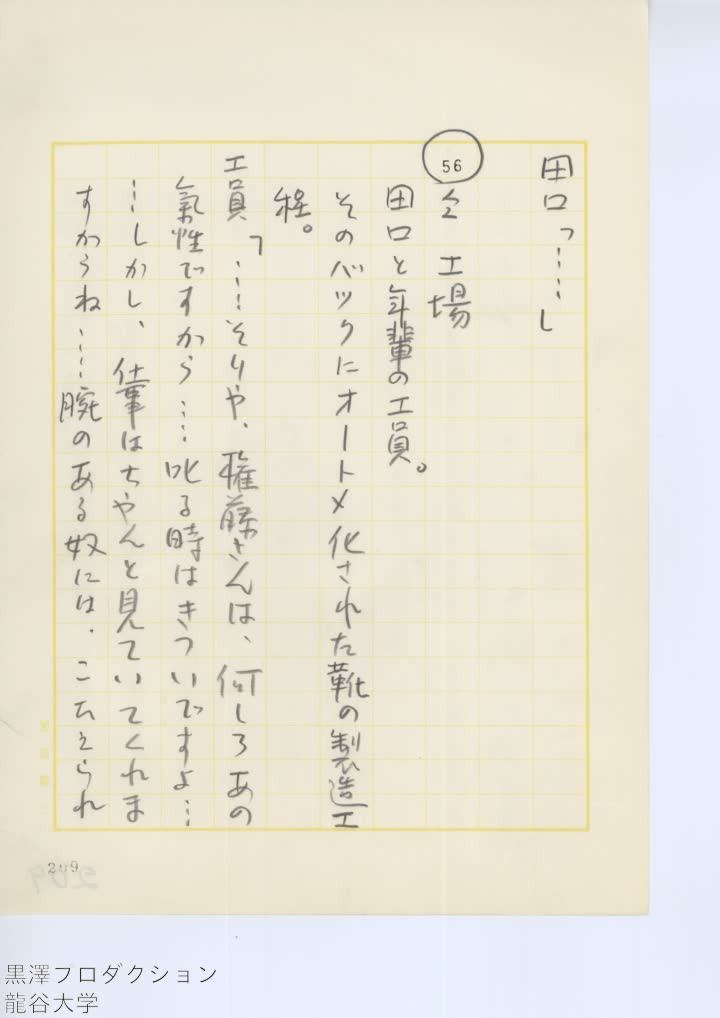 田口「……」
56
仝 工場
田口と年輩の工員。
そのバックにオートメ化された靴の製造工
程。
工員「……そりや、権藤さんは、何しろあの
氣性ですから……叱る時はきついですよ…
…しかし、仕事はちやんと見ていてくれま
すからね……腕のある奴には、こたえられ
209
黒澤プロダクション
龍谷大学